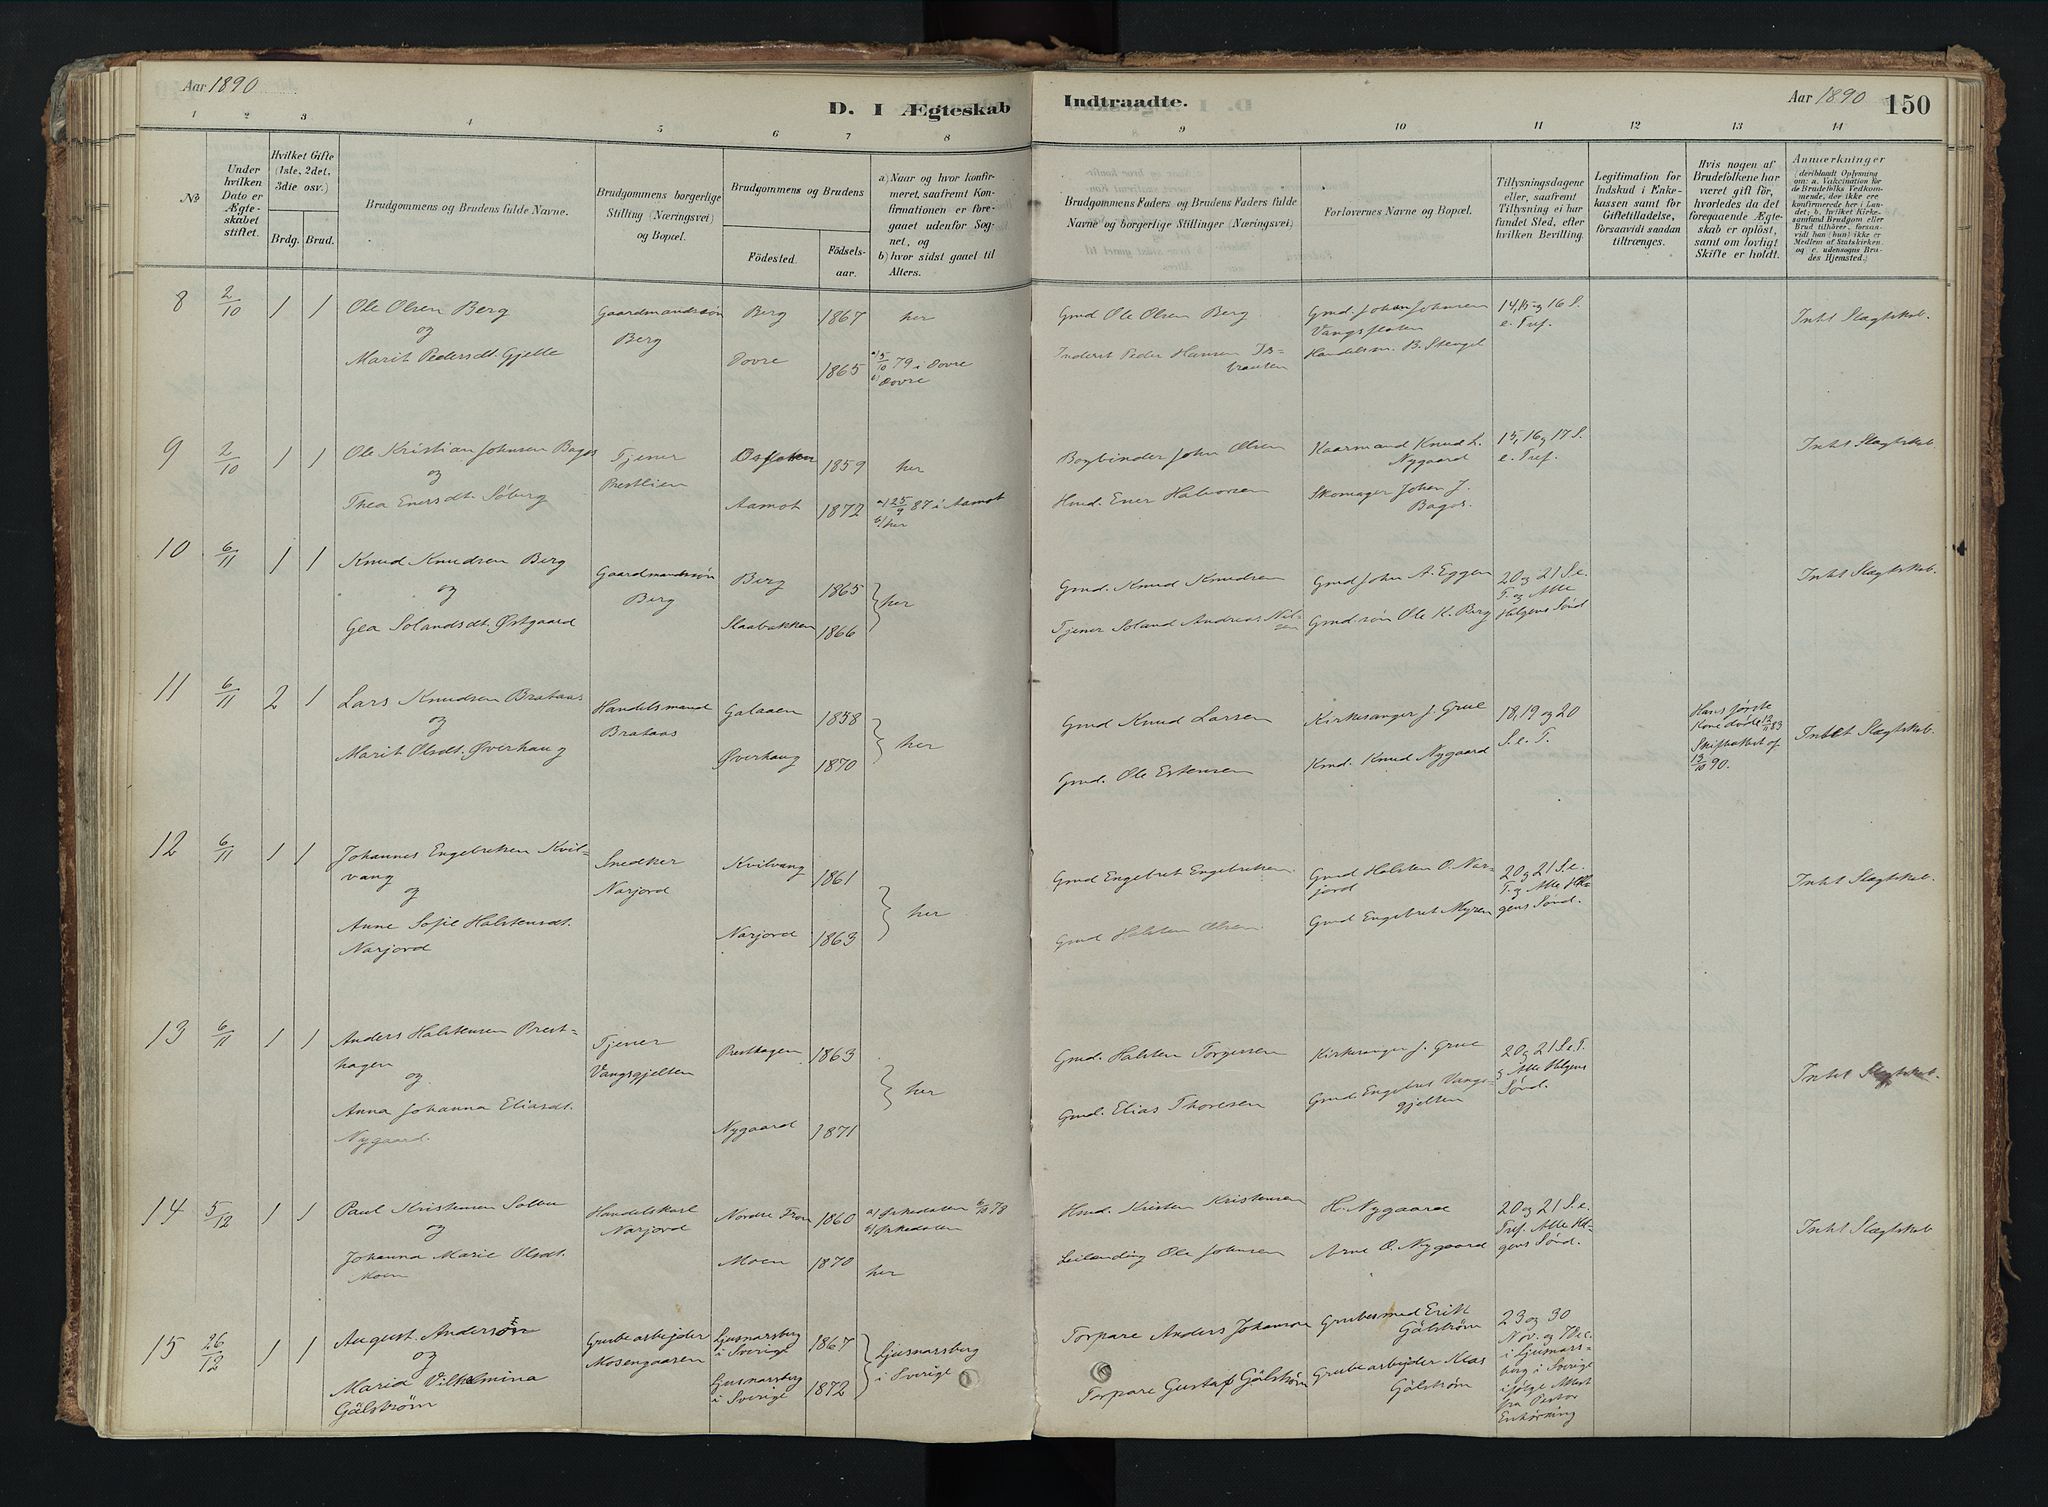 Aar 1890
D. I Ægteskab
Indtraadte.
Aar 1890
150
1 2 3 4 5 6 7 8 9 10 11 12 13 14
№
Under
hvilken
Dato er
Ægte-
skabet
stiftet.
Hvilket Gifte
(1ste, 2det,
3die osv.)
Brdg. Brud.
Brudgommens og Brudens fulde Navne.
Brudgommens borgerlige
Stilling (Næringsvei)
og Bopæl.
Brudgommens og Brudens
Födested.
Födsels-
aar.
a) Naar og hvor konfir-
meret, saafremt Kon-
firmationen er fore-
gaaet udenfor Sog-
net, og
b) hvor sidst gaaet til
Alters.
Brudgommens Faders og Brudens Faders fulde
Navne og borgerlige Stillinger (Næringsvei)
Forlovernes Navne og Bopæl.
Tillysningsdagene
eller, saafremt
Tillysning ei har
fundet Sted, efter
hvilken Bevilling
Legitimation for
Indskud i Enke-
kassen samt for
Giftetilladelse,
forsaavidt saadan
tiltrænges.
Hvis nogen af
Brudefolkene har
været gift før,
hvorledes da det
foregaaende Ægte-
skab er opløst,
samt om lovligt
Skifte er holdt.
Anmærkninger
(deriblandt Oplysning
om: a. Vakcination for
de Brudefolks Vedkom-
mende, der ikke ere
konfirmerede her i Lan-
det; b. hvilket Kirke-
samfund Brudgom eller
Brud tilhörer, forsaa-
vidt han (hun) ikke er
Medlem af Statskirken,
og c. udensogns Bru-
des Hjemsted.)
8 2/10 1 1 Ole Olsen Berg
og
Marit Pedersdt. Gjelle
Gaardmandssøn
Berg
Berg 1867 her
Dovre 1865 a) 5/10 79 i Dovre
b) Dovre
Gmd Ole Olsen Berg
Inderst Peder Hansen
Gmd. Johan Johnsen
Vangsfloten
Handelsm. B. Stengel
14, 15 og 16 S.
e. Tref.
Intet Slægtskab.
9 2/10 1 1 Ole Kristian Johnsen Bagos
og
Thea Enersdt. Søberg
Tjener
Prestlien
1859 her
Aamot 1872 a) 25/9 87 i Aamot
b) her
Bogbinder John Olsen
Hmd. Ener Halvorsen
Kaarmand Knud L.
Nygaard
Skomager Johan J.
Bagos.
15, 16 og 17 S.
e. Tref.
Intet Slægtskab.
10 6/11 1 1 Knud Knudsen Berg
og
Gea Solandsdt. Østgaard
Gaardmandssøn
Berg
Berg 1865
Slaabakken 1866
her
Gmd. Knud Knudsen
Tjener Soland Andreas Nil-
sen
Gmd John A. Eggen
Gmd.søn Ole K. Berg
20 og 21 S. e.
T. og Alle
Helgens Sønd
Intet Slægtskab.
11 6/11 2 1 Lars Knudsen Brataas
og
Marit Olsdt. Øverhaug
Handelsmand
Brataas
Galaaen 1858
Øverhaug 1870
her
Gmd Knud Larsen
Gmd. Ole Estensen
Kirkesanger J. Grue
Kmd. Knud Nygaard
18, 19 og 20
S. e. T.
Hans første
Kone døde 12/11 83
Skifteattest af
13/10 90.
Intet Slægtskab.
12 6/11 1 1 Johannes Engebretsen Kvil-
vang
og
Anne Sofie Halstensdt.
Narjord
Snedker
Narjord
Kvilvang 1861
Narjord 1863
her
Gmd Engebret Engebretsen
Gmd Halsten Olsen
Gmd Halsten O. Nar-
jord
Gmd Engebret Myren
20 og 21 S. e.
T. og Alle Hel-
gens Sønd.
Intet Slægtskab.
13 6/11 1 1 Anders Halstensen Prest-
hagen
og
Anna Johanna Eliasdt.
Nygaard.
Tjener
Vangsgjelten
Presthagen 1863
Nygaard 1871
her
Gmd. Halsten Torgersen
Gmd. Elias Thoresen
Kirkesanger J. Grue
Gmd. Engebret Vangs-
gjelten
20 og 21 S. e. T.
og Alle Helgens
Sønd.
Intet Slægtskab.
14 5/12 1 1 Paul Kristensen Solbu
og
Johanna Marie Olsdt.
Moen
Handelskarl
Narjord
Nordre Fron 1860 a) Ørkedalen 6/10 78
b) Ørkedalen
Moen 1870 her
Hmd. Kristen Kristensen
Leilending Ole Johnsen
H. Nygaard
Arne O. Nygaard
20 og 21 S. e.
Tref. Alle Hel-
gens Sønd.
Intet Slægtskab
15 26/12 1 1 August Anderson
og
Maria Vilhelmina
Gälström
Grubearbejder
Mosengaaren
Ljusnarsberg
i Sverige 1867
Ljusnarsberg
i Sverige 1872
Ljusnarsberg
i Sverige
Torpare Anders Johanson
Torpare Gustaf Gälström
Grubesmed Erik
Gälström
Grubearbejder Klas
Gälström
23 og 30
Nov. og 7 Dec.
i Ljusnars-
berg i Sverige
ifølge Attest
fra Pastor
Enhörning